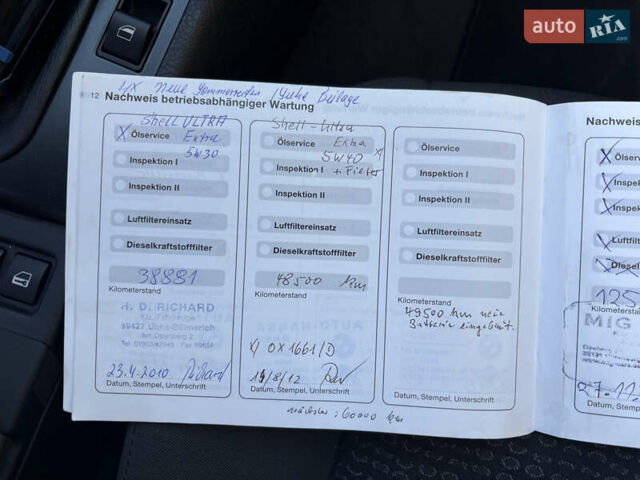 auto RIA.com
4X Neue Sommerreifen / Siehe Beilage
12 Nachweis betriebsabhängiger Wartung
Shell ULTRA
X Ölservice Extra
5W30
Inspektion I
Inspektion II
Luftfiltereinsatz
Dieselkraftstofffilter
38881
Kilometerstand
H. D. RICHARD
Kfz.
59427 Unna-Billmerich
23.4.2010
Datum, Stempel, Unterschrift
Shell-Ultra
Ölservice Extra
5W40 x)
Inspektion I + Filter
Inspektion II
Luftfiltereinsatz
Dieselkraftstofffilter
48500 km
Kilometerstand
x) OX 1661/D
19/8/12
Datum, Stempel, Unterschrift
nächster : 60000 km
Ölservice
Inspektion I
Inspektion II
Luftfiltereinsatz
Dieselkraftstofffilter
Kilometerstand
49500 km neue
Batterie eingebaut.
Datum, Stempel, Unterschrift
Nachweis
X Ölserv
X Inspek
X Inspek
X Luftfil
X Diesel
125
Kilometerstand
MIG
07.11
Datum, Stemp